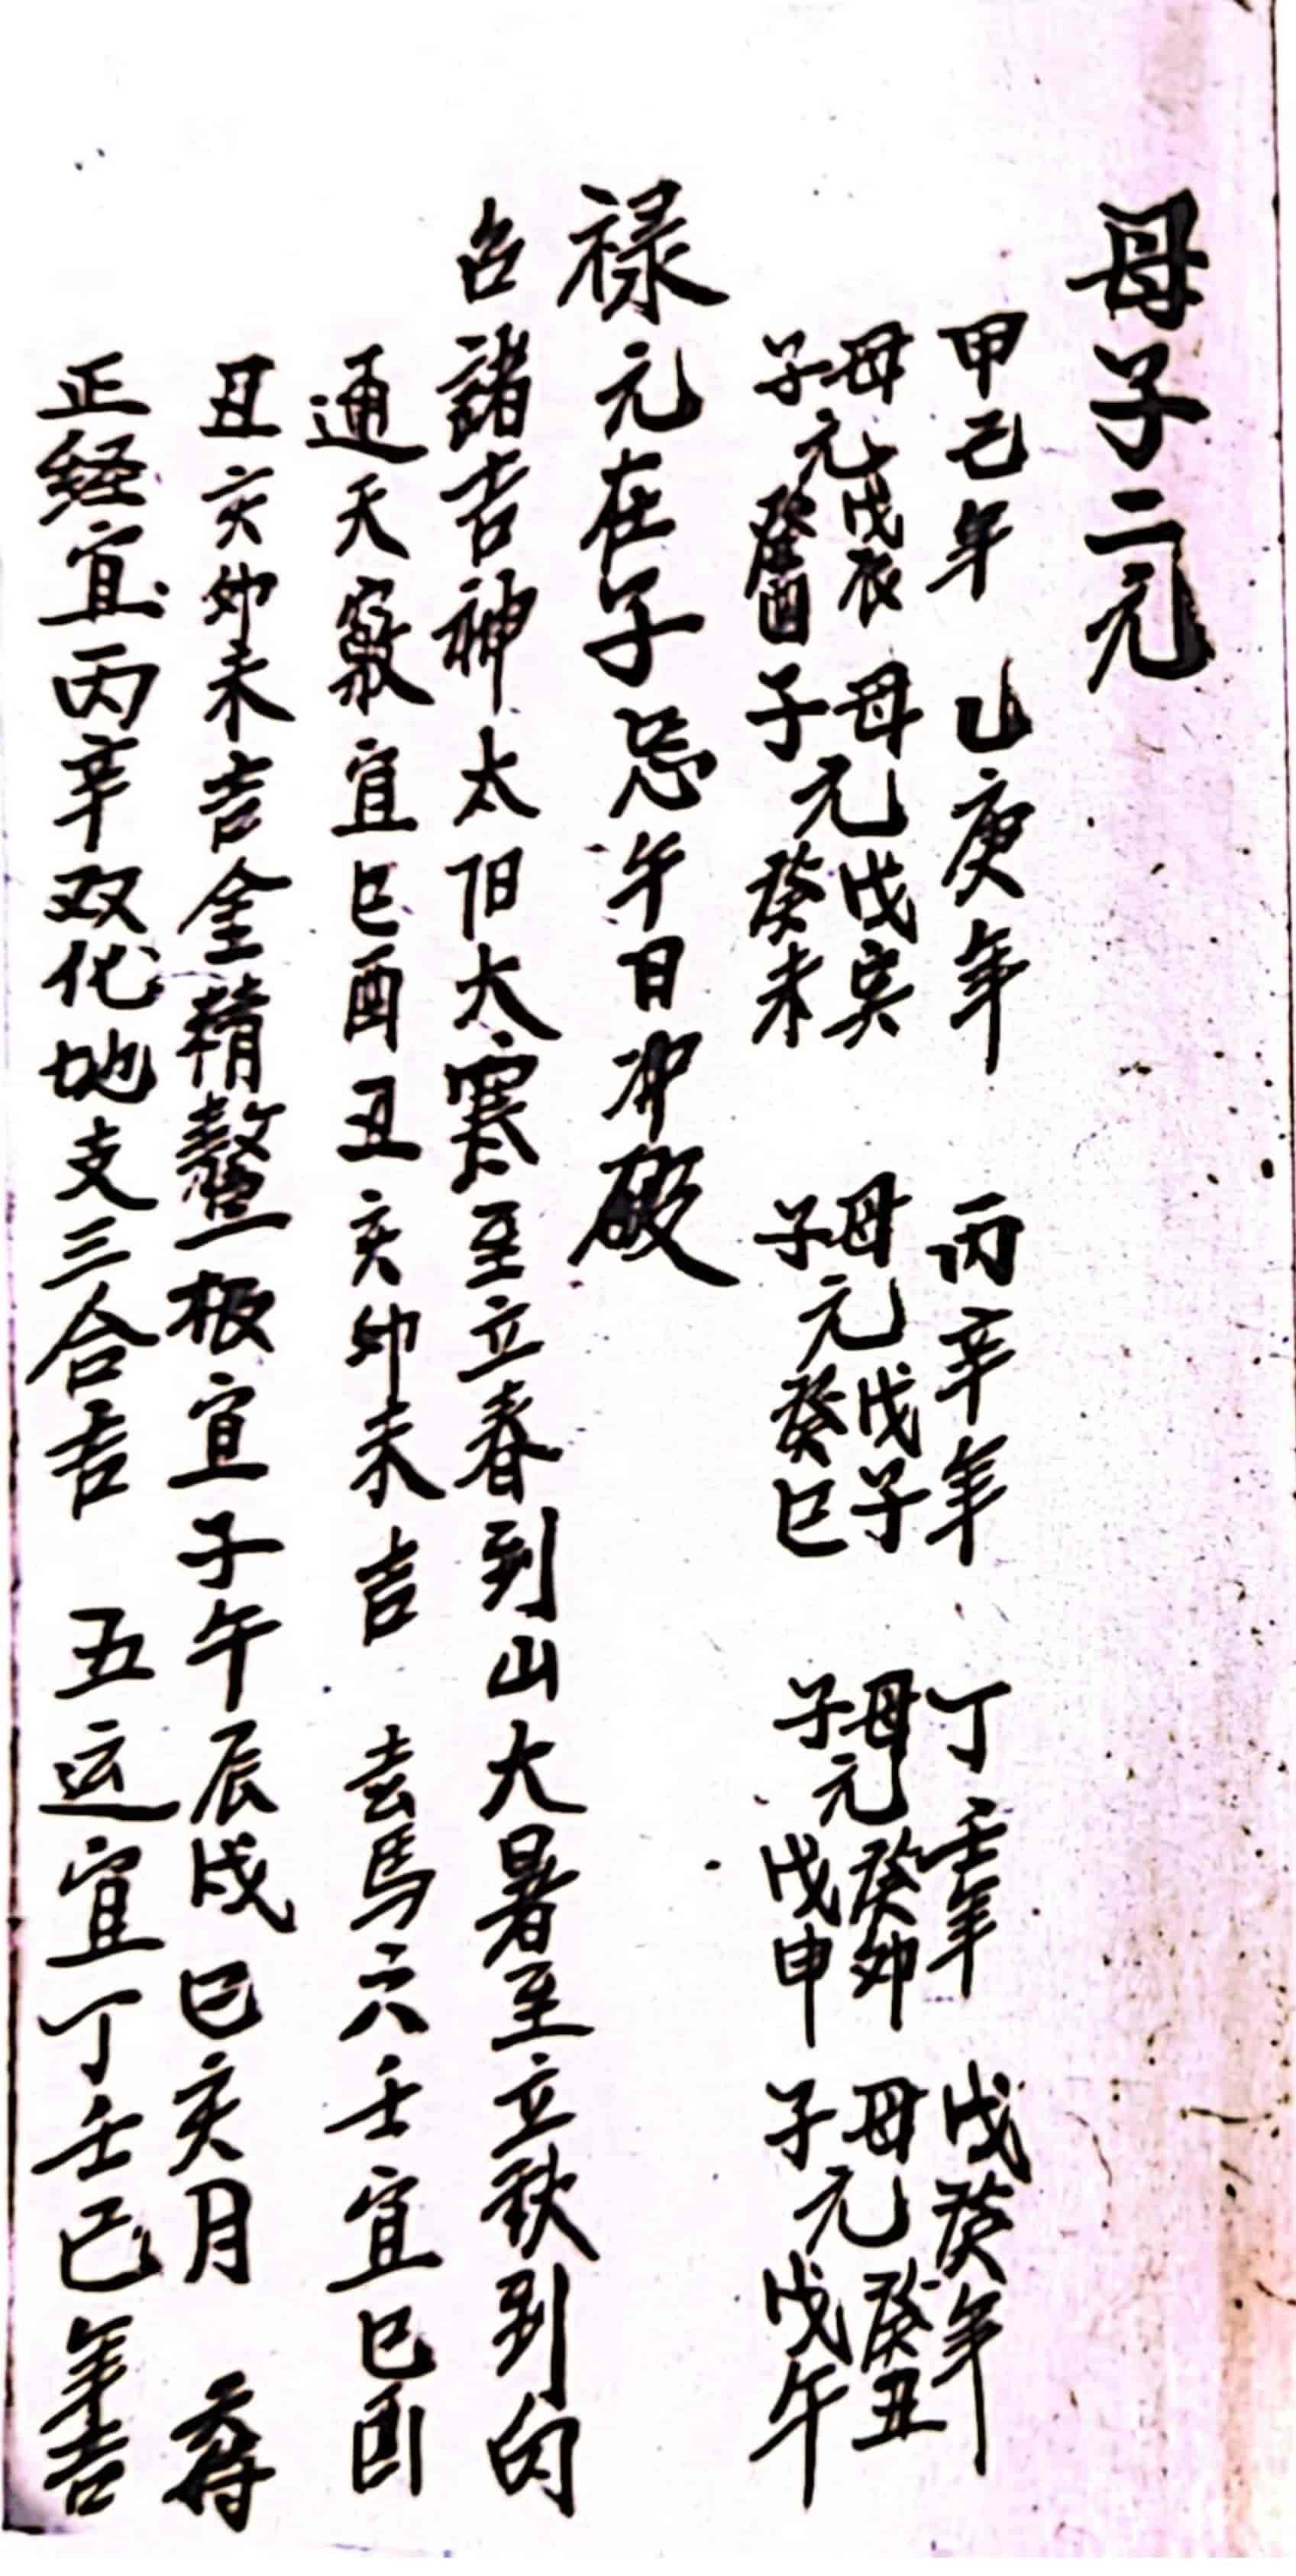 母子二元
甲己年 乙庚年 丙辛年 丁壬年 戊癸年
母元戊辰 母元戊寅 母元戊子 母元癸卯 母元癸丑
子元癸酉 子元癸未 子元癸巳 子元戊申 子元戊午
禄元在子忌午日冲破
召諸吉神太阳大寒至立春到山大暑至立秋到向
通天竅宜巳酉丑亥卯未吉 走馬六壬宜巳酉
丑亥卯未吉金精鰲极宜子午辰戌巳亥月 尋
正经宜丙辛双化地支三合吉 五运宜丁壬己年吉